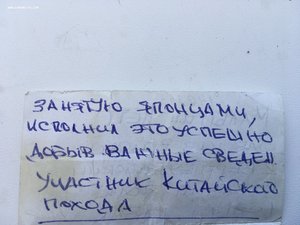 ЗАНЯТУЮ ЯПОНЦАМИ,
ИСПОЛНИЛ ЭТО УСПЕШНО
ДОБЫВ ВАЖНЫЕ СВЕДЕН.
УЧАСТНИК КИТАЙСКОГО
ПОХОДА